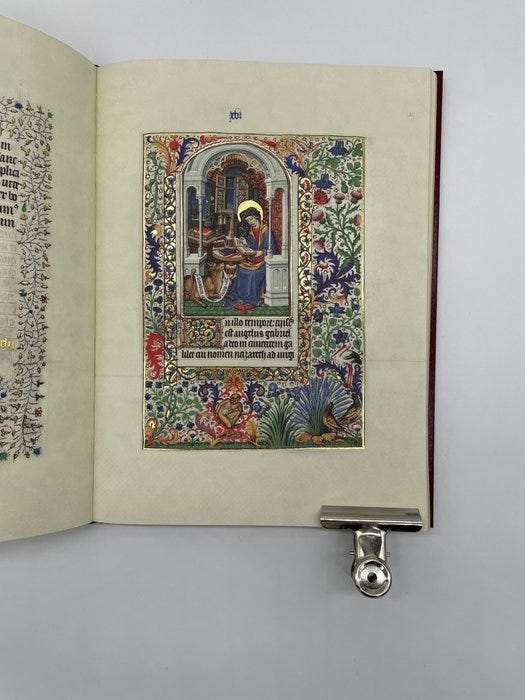 xvi
In illo tempore: missus
est angelus gabriel
a deo in civitatem ga
lilee cui nomen nazareth ad virgi